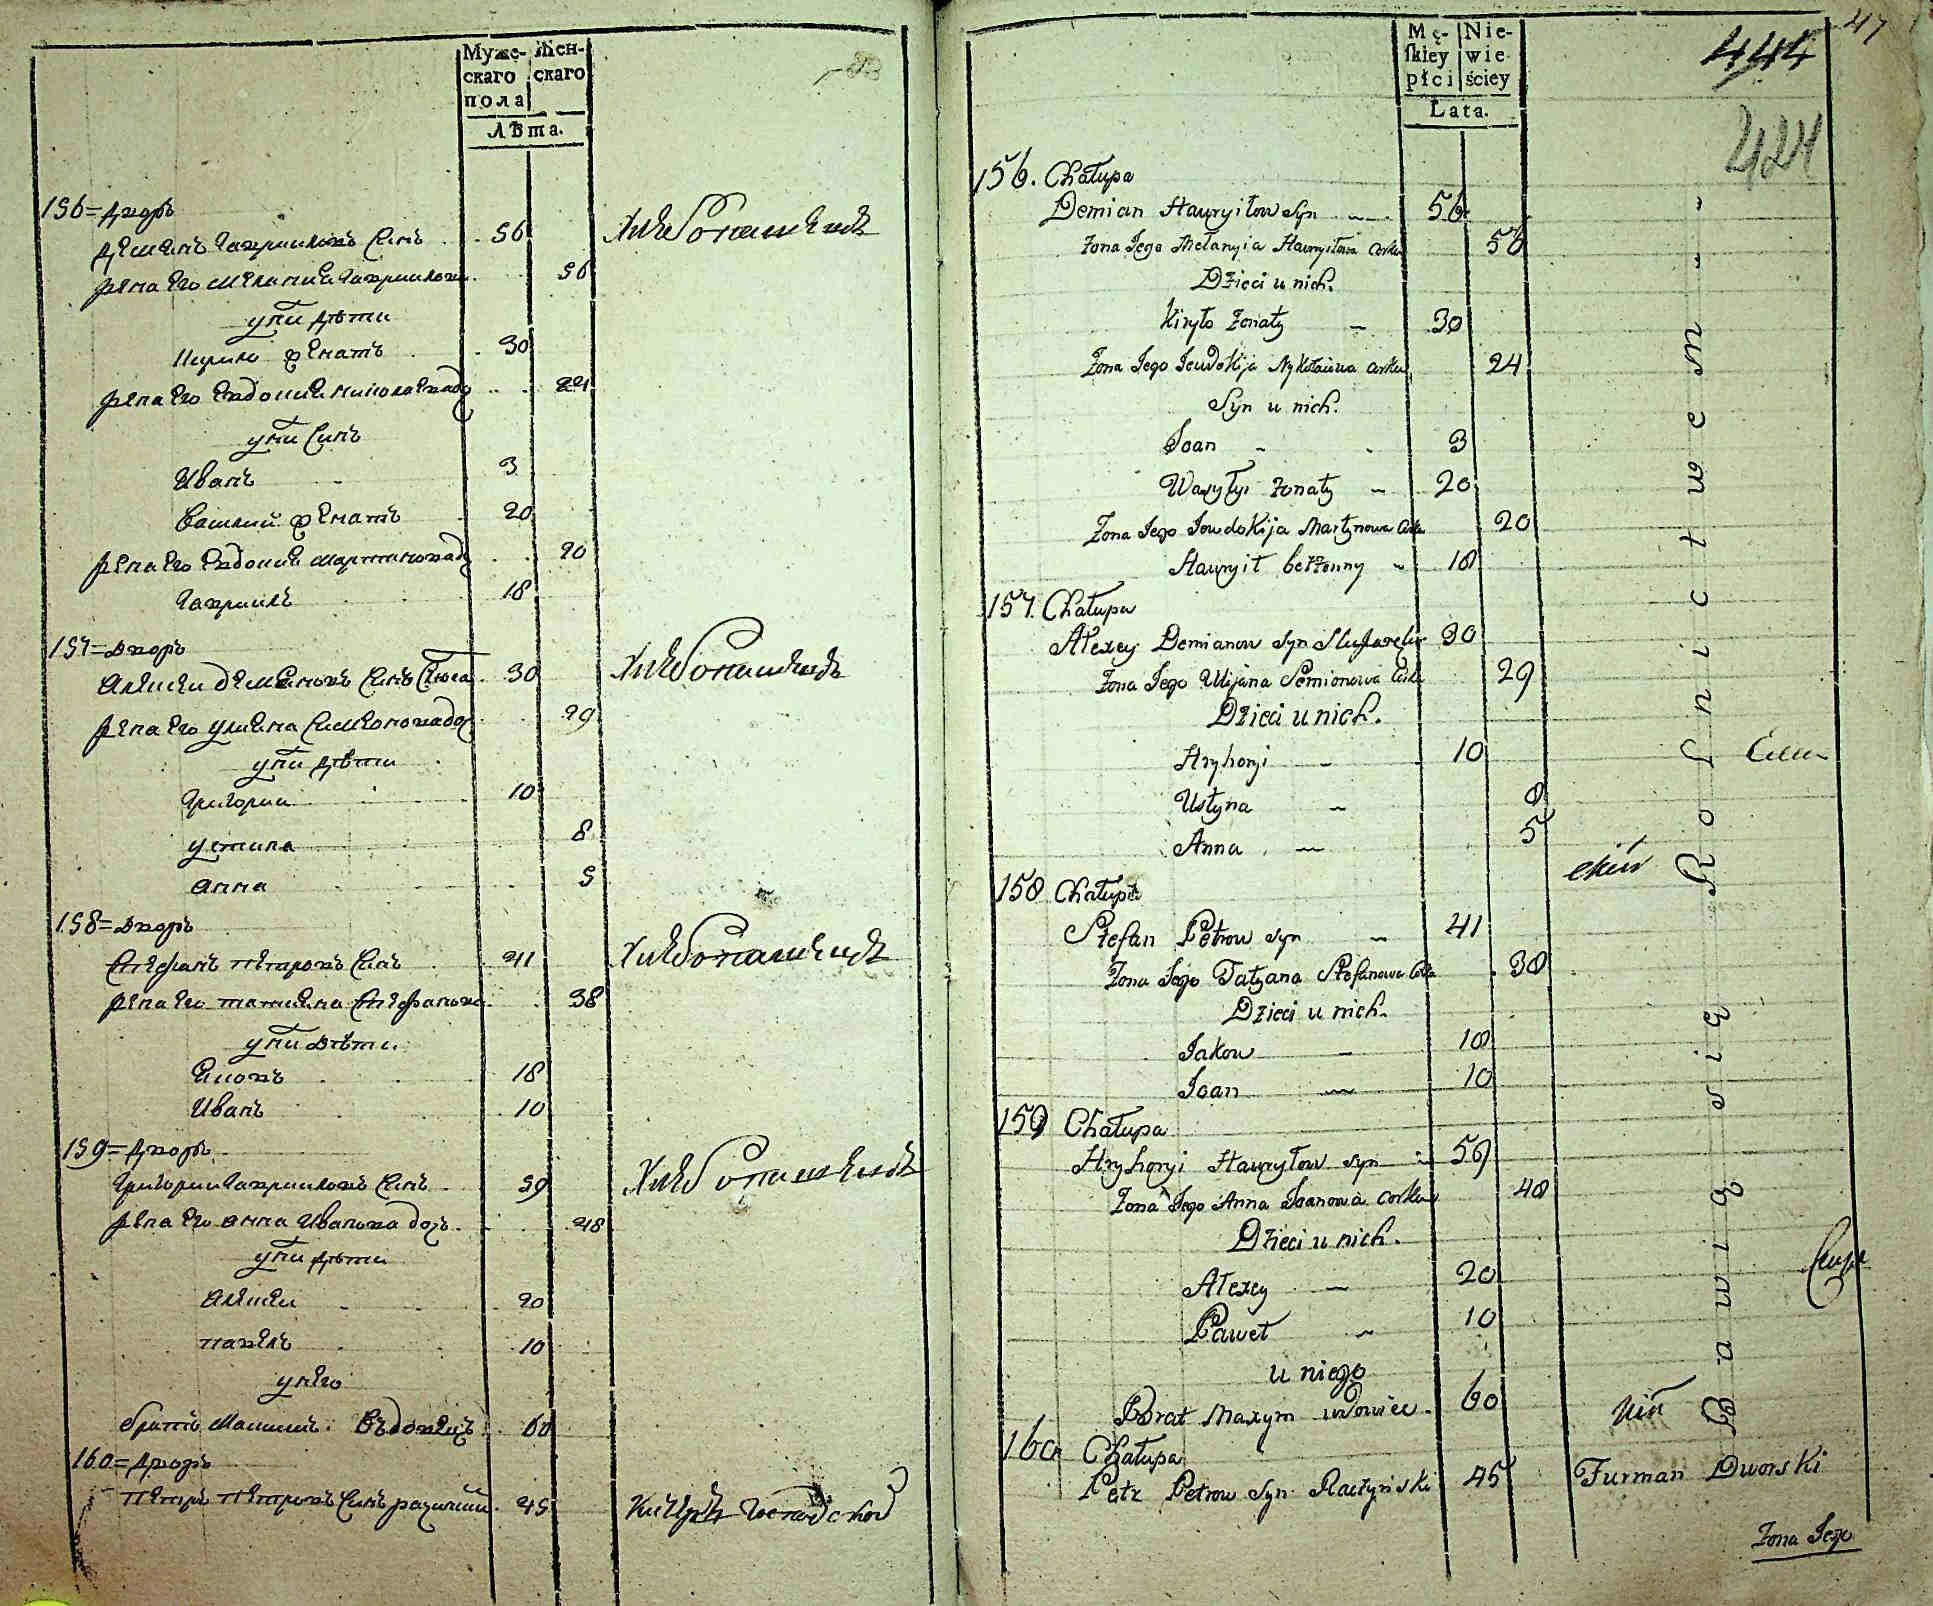 Муже-
скаго
пола
Жен-
скаго
Лѣта.
156 = Дворъ
Демянъ Гавриловъ Синъ 56
жена Его Мелания Гаврилова 56
у ни дѣти
Кирило женатъ 30
жена Его Евдокия Николаева до 24
у ни Синъ
Иванъ 3
Василий женатъ 20
жена Его Евдокия Мартинова до 20
Гавриилъ 18
157 = Дворъ
Алексѣй Демяновъ Синъ 30
жена Его Улияна Симеонова доч 29
у ни дѣти
Григорий 10
Устина 8
Анна 5
158 = Дворъ
Стефанъ Петровъ Синъ 41
жена Его Татияна Стефанова 38
у ни дѣти
Яковъ 18
Иванъ 10
159 = Дворъ
Григорий Гавриловъ Синъ 59
жена Его Анна Иванова доч 48
у ни дѣти
Алексѣй 20
Павелъ 10
у него
братъ Максимъ вдовецъ 60
160 = Дворъ
Петръ Петровъ Синъ 45
Хлебопашецъ
Хлебопашецъ
Хлебопашецъ
Хлебопашецъ
Mę-
skiey
płci
Nie-
wie-
ściey
Lata.
47
444
424
156. Chałupa
Demian Hawryiłow Syn 56
Zona Jego Mełanyia Hawryłowa Corka 56
Dzieci u nich.
Kiryło Zonaty 30
Zona Jego Jewdokija Nykołaiowa Corka 24
Syn u nich.
Joan 3
Wasyłyi Zonaty 20
Zona Jego Jowdokija Martynowa Corka 20
Hawryił bezżenny 18
157. Chałupa
Ałexey Demianow Syn 30
Zona Jego Ulijana Semionowa Corka 29
Dzieci u nich.
Hryhoryi 10
Ustyna 8
Anna 5
158 Chałupa
Stefan Petrow Syn 41
Zona Jego Tatyana Stefanowa Corka 38
Dzieci u nich.
Jakow 18
Joan 10
159 Chałupa
Hryhoryi Hawryłow Syn 59
Zona Jego Anna Joanowa Corka 48
Dzieci u nich.
Ałexey 20
Paweł 10
u niego
Brat Maxym wdowiec 60
160 Chałupa
Petr Petrow Syn Raczynski 45 Furman Dworski
Rolnictwem
się
Bawią
Zona Jego